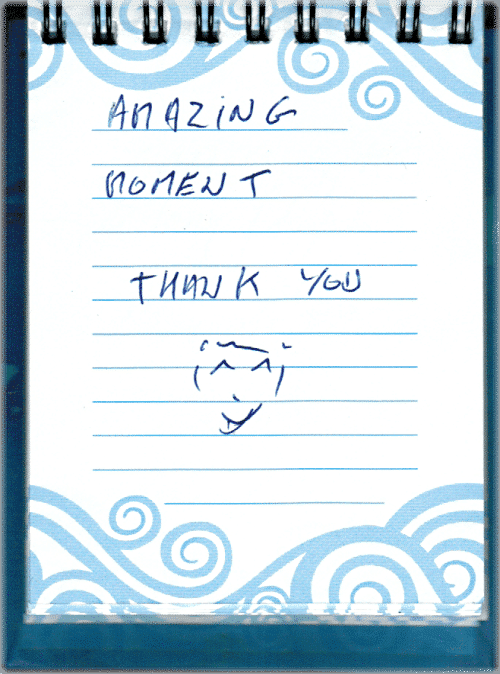 AMAZiNG
MOMENT
THANK YOU